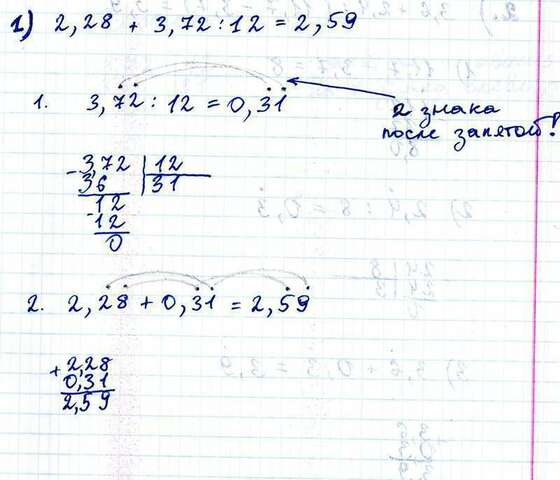 1) 2,28 + 3,72 : 12 = 2,59
1. 3,72 : 12 = 0,31
2 знака
после запятой!
- 3,72 | 12
36 | 31
- 12
12
0
2. 2,28 + 0,31 = 2,59
+ 2,28
0,31
2,59